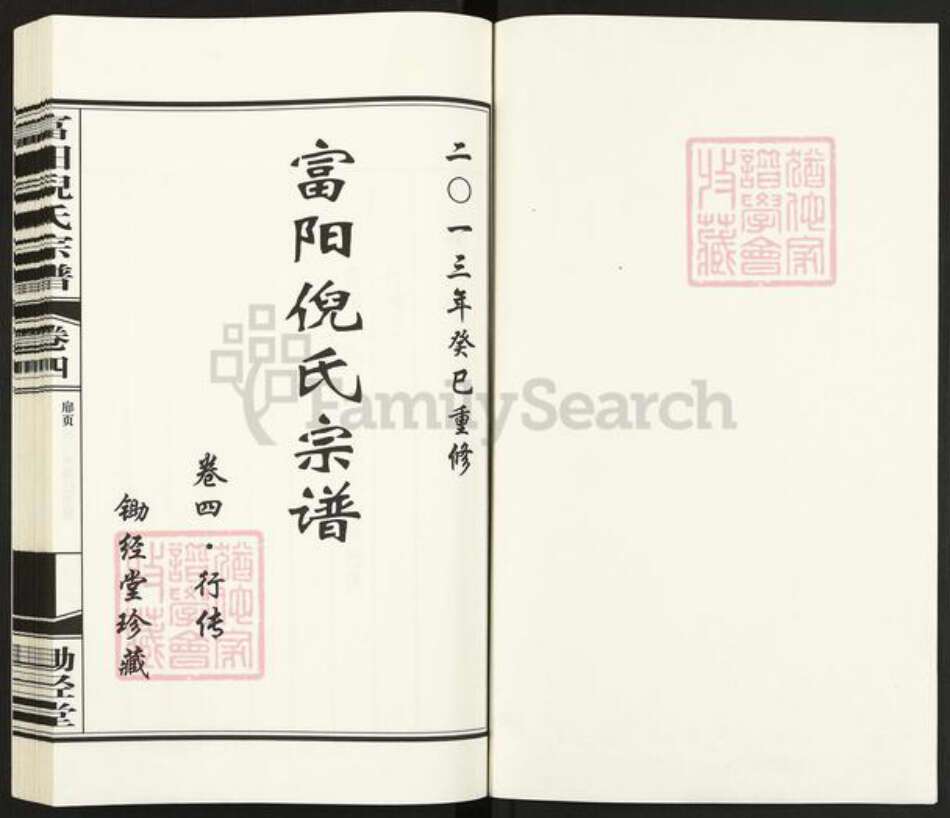 二〇一三年癸巳重修
富阳倪氏宗谱
卷四·行传
锄经堂珍藏
富阳倪氏宗谱
卷四
扉页
锄经堂
犹他家
谱學會
收藏
FamilySearch